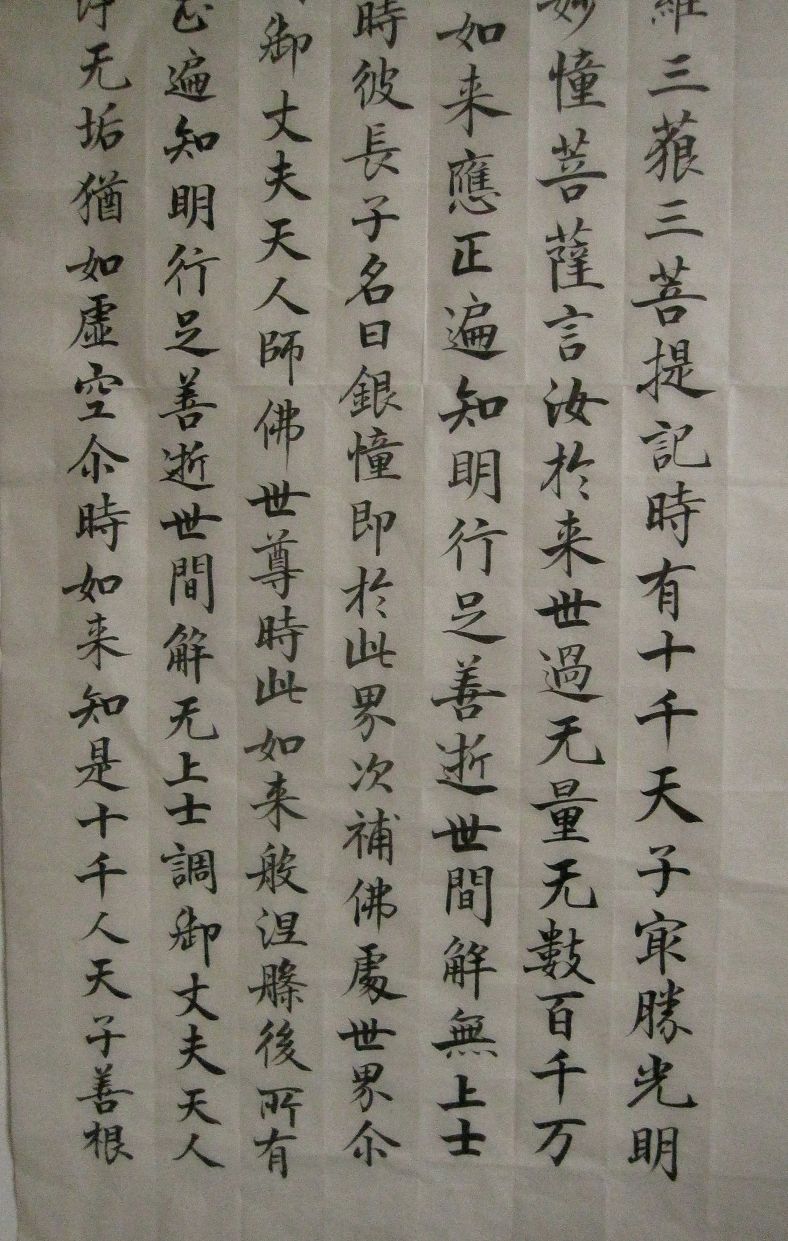 維三藐三菩提記時有十千天子㝡勝光明
妙憧菩薩言汝於来世過无量无數百千万
如来應正遍知明行足善逝世間解無上士
時彼長子名曰銀憧即於此界次補佛處世界尒
御丈夫天人師佛世尊時此如来般涅槃後所有
正遍知明行足善逝世間解无上士調御丈夫天人
淨无垢猶如虛空尒時如来知是十千人天子善根